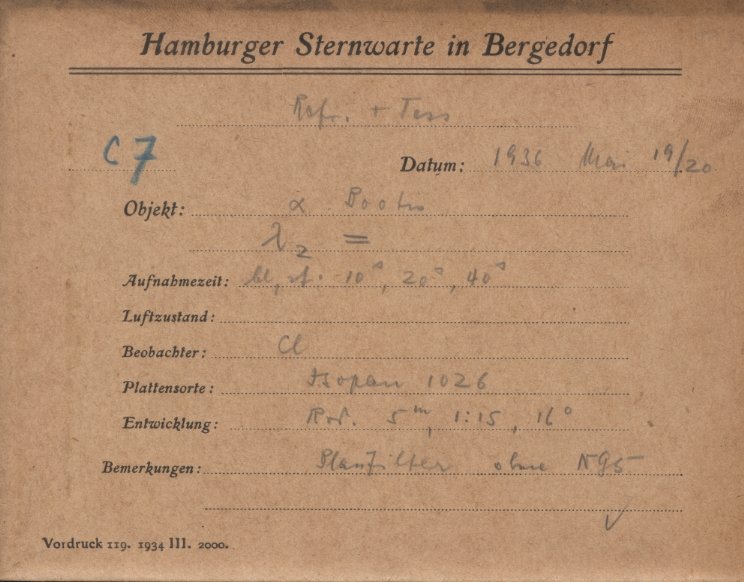 Hamburger Sternwarte in Bergedorf
Refr. + Tess
C7
Datum: 1936 Mai 19/20
Objekt: α Bootis
λ₂ =
Aufnahmezeit: 10ˢ, 20ˢ, 40ˢ
Luftzustand:
Beobachter: Cl
Plattensorte: Isopan 1026
Entwicklung: Rod. 5ᵐ, 1:15, 16°
Bemerkungen: Blaufilter ohne NG5
✓
Vordruck 119. 1934 III. 2000.